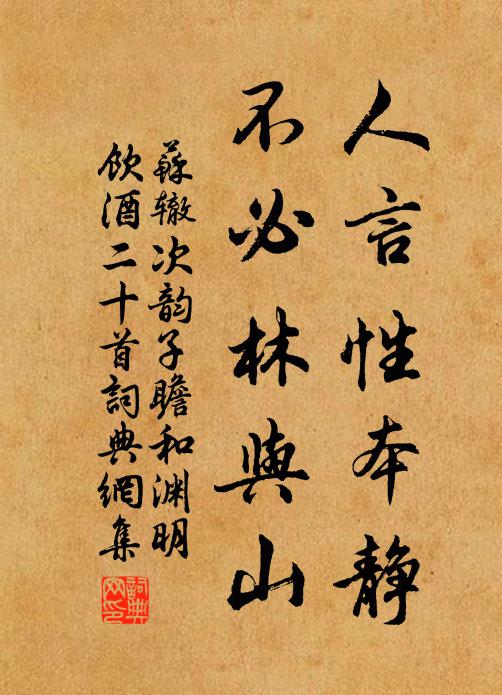 人言性本静
不必林與山
蘇辙次韵子瞻和渊明
飲酒二十首詞典網集
詞典
网印